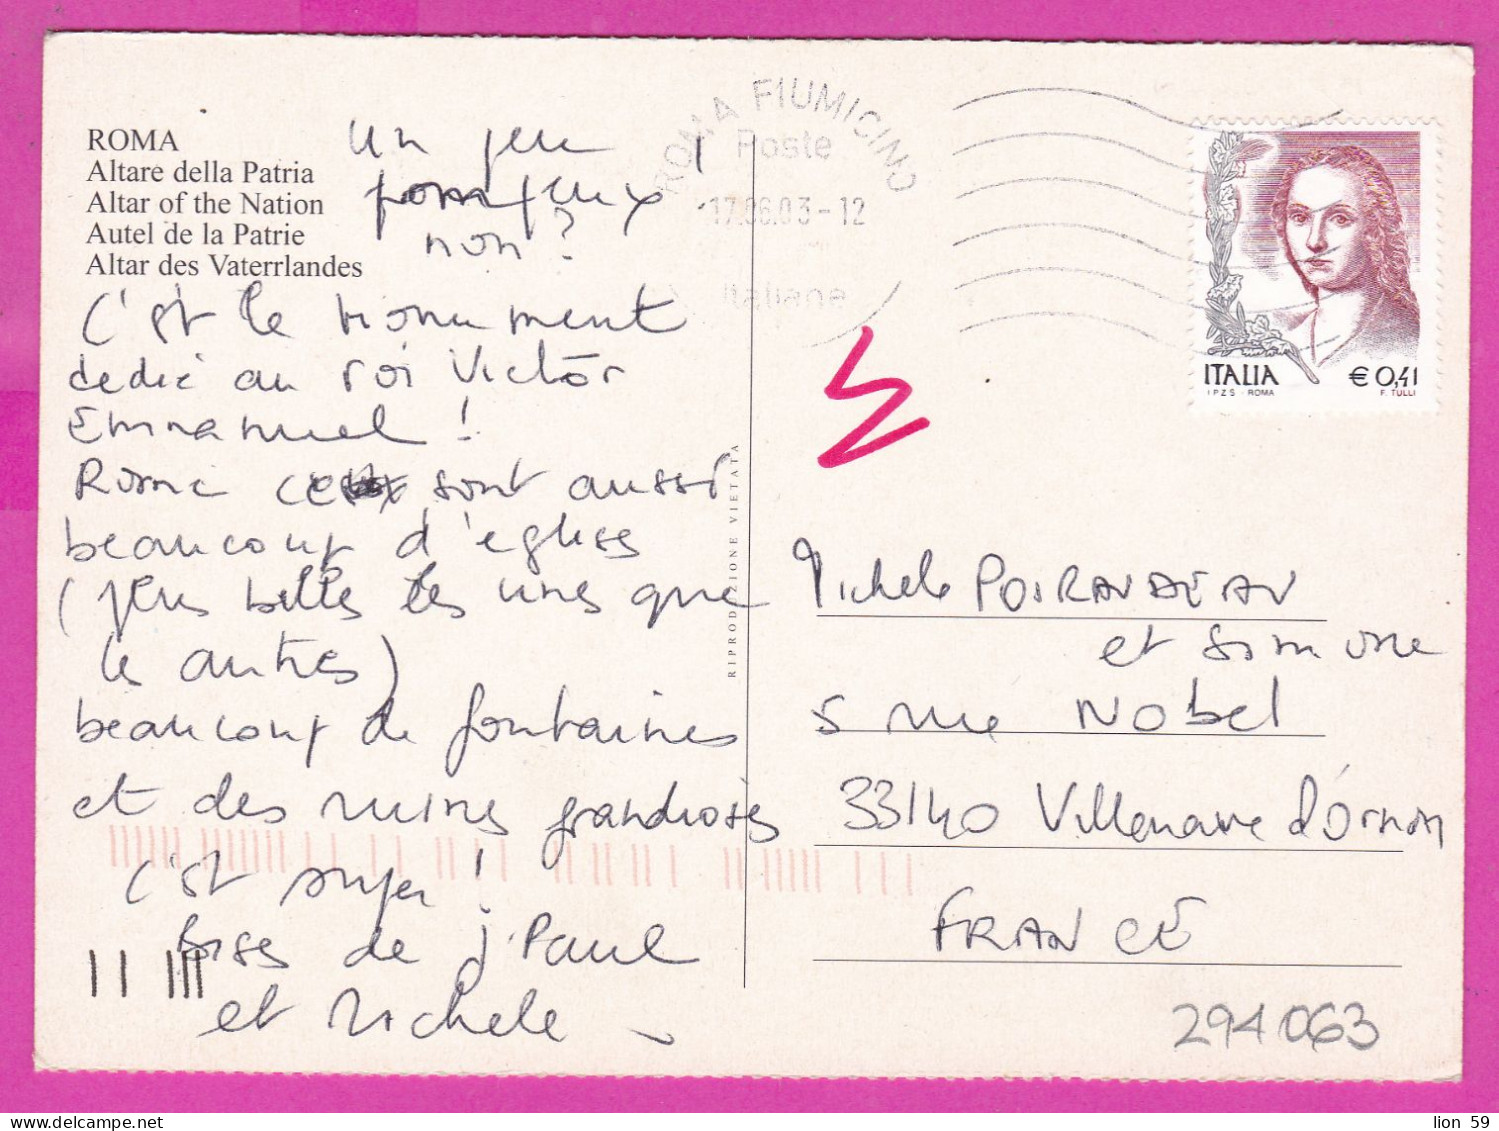 ROMA
Altare della Patria
Altar of the Nation
Autel de la Patrie
Altar des Vaterrlandes
Un peu
pompeux
non?
C'est le Monument
dedié au roi Victor
Emmanuel !
Rome ce sont aussi
beaucoup d'eglises
(plus belles les unes que
les autres)
beaucoup de fontaines
et des ruines grandioses
c'est super !
Bises de J. Paul
et Michele
RIPRODUZIONE VIETATA
ROMA FIUMICINO
Poste
17.06.03-12
Italiane
ITALIA € 0,41
IPZS - ROMA F. TULLI
Michele POIRAUDEAU
et Simone
5 rue Nobel
33140 Villenave d'Ornon
FRANCE
294063
lion 59